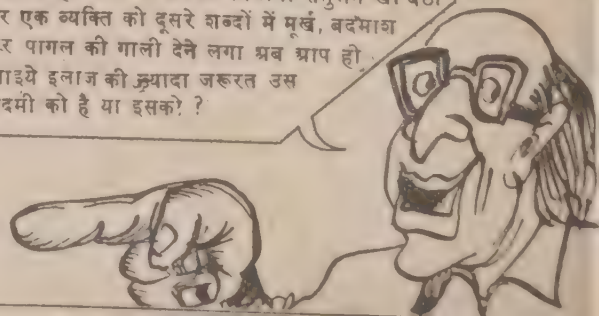 र एक व्यक्ति को दूसरे शब्दों में मूर्ख, बदमाश
र पागल की गाली देने लगा अब आप ही
ाइये इलाज की ज़्यादा जरूरत उस
दमी को है या इसको ?